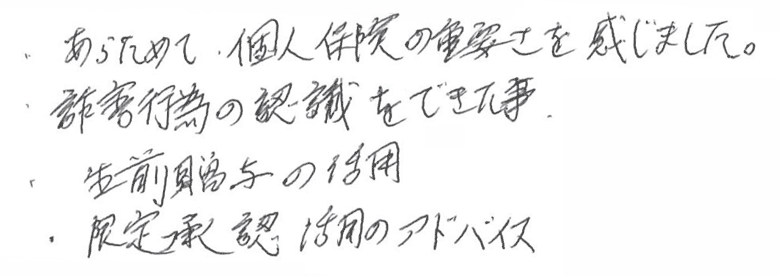 ・あらためて、個人保険の重要さを感じました。
・詐害行為の認識をできた事.
・生前贈与の活用
・限定承認 活用のアドバイス